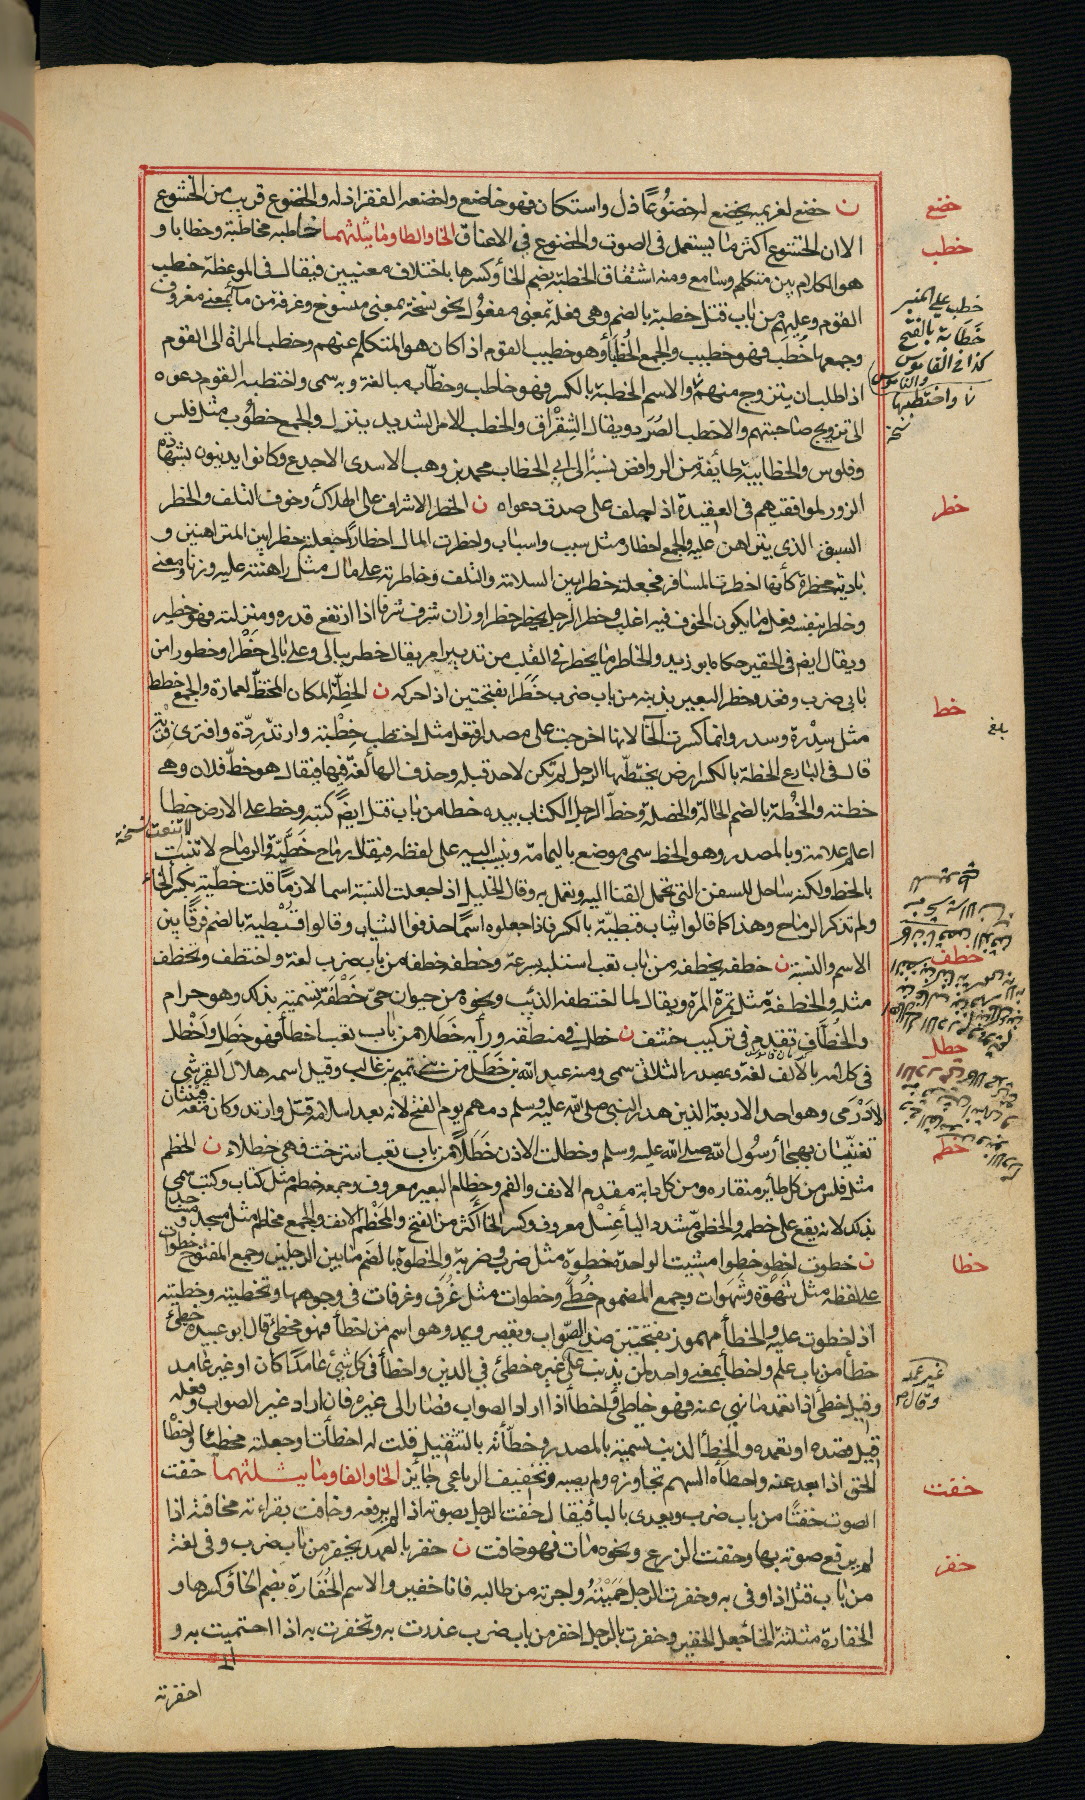 خضع
ن خضع لغريمه يخضع له خضوعًا ذل واستكان فهو خاضع واخضعه الفقر اذله والخضوع قريب من الخشوع
خطب
الا ان الخشوع اكثر ما يستعمل فى الصوت والخضوع فى الاعناق الخا والطا وما يثلثهما خاطبه مخاطبة وخطابا و
هو الكلام بين متكلم وسامع ومنه اشتقاق الخطبة بضم الخأ وكسرها باختلاف معنيين فيقال فى الموعظة خطب
القوم وعليهم من باب قتل خطبة بالضم وهى فعلة بمعنى مفعولة نحو نسخة بمعنى منسوخ وغرفة من ماء بمعنى مغروف
وجمعها خُطب فهو خطيب والجمع الخُطبأ وهو خطيب القوم اذا كان هو المتكلم عنهم وخطب المراة الى القوم
اذا طلب ان يتزوج منهم والاسم الخطبة بالكسر فهو خاطب وخطّاب مبالغة وبه سمى واختطبه القوم دعوه
الى تزويج صاحبتهم والاخطب الصُرَد ويقال الشِقْرَاق والخطب الامر الشديد ينزل والجمع خطُوب مثل فلس
وفلوس والخطابية طايفة من الروافض نسبة الى ابى الخطاب محمد بن وهب الاسدى الاجدع وكانوا يدينون بشهادة
خطر
الزور لموافقيهم فى العقيدة اذا حلف على صدق دعواه ن الخطر الاشراف على الهلاك وخوف التلف والخطر
السبق الذى يتراهن عليه والجمع اخطار مثل سبب واسباب واخطرت المال اخطارًا جعلته خطرا بين المتراهنين و
بادية مخطرة كأنها اخطرت المسافر فجعلته خطرا بين السلامة والتلف وخاطرته على مال مثل راهنته عليه وزنا ومعنى
وخاطر بنفسه فعل ما يكون الخوف فيه اغلب وخطر الرجل يخطر خطرا وزان شرف شرفا اذا ارتفع قدره ومنزلته فهو خطير
ويقال ايض فى الحقير حكاه ابو زيد والخاطر ما يخطر فى القلب من تدبير امر يقال خطر ببالى وعلى بالى خَطْرا وخطورا من
بابى ضرب وقعد وخطر البعير بذنبه من باب ضرب خَطَرا بفتحتين اذا حركه ن الخِطّة المكان المختطّ لعمارة والجمع خطط
خط
مثل سِدْرة وسدر وانما كسرت الخأ لانها اخرجت على مصدر افتعل مثل اختطب خِطْبة وارتدّ رِدّة وافترى فِرْية
قال فى البارع الخطة بالكسر ارض يختطّها الرجل لم تكن لاحد قبله وحذف الهأ لغة فيها فيقال هو خطّ فلان وهى
خطته والخُطّة بالضم الحالة والخصلة وخطّ الرجل الكتاب بيده خطا من باب قتل ايضًا كتبه وخط على الارض خطا
اعلم علامة وبالمصدر وهو الخط سمى موضع باليمامة وينسب اليه على لفظه فيقال رماح خَطّيّة والرماح لا تنبت
بالخط ولكنه ساحل للسفن التى تحمل القنا اليه وتعمل به وقال الخليل اذا جعلت النسبة اسما لازما قلت خطّية بكسر الخأ
ولم تذكر الرماح وهذا كما قالوا ثياب قبطيّة بالكسر فاذا جعلوه اسمًا حذفوا الثياب وقالوا قُبْطية بالضم فرقًا بين
خطف
الاسم والنسبة ن خطفه يخطفه من باب تعب استلبه بسرعة وخطفه خطفا من باب ضرب لغة واختطف وتخطف
مثله والخطفة مثل تمرة المرة ويقال لما اختطفه الذئب ونحوه من حيوان حىّ خَطْفَة تسمية بذلك وهو حرام
خطل
والخُطَّاف تقدم فى تركيب خشف ن خطل فى منطقه ورأيه خَطَلا من باب تعب اخطأ فهو خَطِل واخْطل
فى كلامه بالالف لغة وبمصدر الثلاثى سمى ومنه عبد الله بن خَطَل من بنى تميم بن غالب وقيل اسمه هلال القرشى
الاَدْرَمى وهو احد الاربعة الذين هدر النبى صلى الله عليه وسلم دمهم يوم الفتح لانه بعد اسلامه قتل وارتد وكان معه قينتان
خطم
تغنّيان بهجأ رسُول الله صلى الله عليه وسلم وخطلت الاذن خَطَلاً من باب تعب استرخت فهى خطلاء ن الخطم
مثل فلس من كل طاير منقاره ومن كل دابة مقدم الانف والفم وخطام البعير معروف وجمعه خطم مثل كتاب وكتب سمى
بذلك لانه يقع على خطمه والخطمىّ مشدد اليأ غِسْل معروف وكسر الخأ اكثر من الفتح والمَخْطم الانف والجمع مخاطم مثل مسجد ومساجد
خطا
ن خطوت اخطو خطوا مشيت الواحدة خطوة مثل ضرب وضربة والخطوة بالضم ما بين الرجلين وجمع المفتوح خطوات
على لفظه مثل شَهْوَة وشَهَوات وجمع المضموم خُطًى وخطوات مثل غُرَف وغرفات فى وجوهها وتخطيته وخطيته
اذا خطوت عليه والخطأ مهموز بفتحتين ضد الصّواب ويقصر ويمد وهو اسم من اخطأ فهو مخطئ قال ابو عبيدة خطئ
خطأ من باب علم واخطأ بمعنى واحد لمن يذنب على غير عمد وقال غيره خطئ فى الدين واخطأ فى كل شئ عامدًا كان او غير عامد
وقيل خطئ اذا تعمد ما نهى عنه فهو خاطئ واخطأ اذا اراد الصواب فصار الى غيره فان اراد غير الصواب وفعله
قيل قصده او تعمده والخِطأ الذنب تسمية بالمصدر وخطّأته بالتثقيل قلت له اخطأت او جعلته مخطئا واخطأ
خفت
الحق اذا بعد عنه واخطأه السهم تجاوزه ولم يصبه وتخفيف الرباعى جايز الخا والفا وما يثلثهما خفت
الصوت خفتًا من باب ضرب ويعدى بالبأ فيقال خفت الرجل بصوته اذا لم يرفعه وخافت بقراءته مخافتة اذا
خفر
لم يرفع صوته بها وخفت الزرع ونحوه مات فهو خافت ن خفر بالعهد يخفر من باب ضرب وفى لغة
من باب قتل اذا وفى به وخفرت الرجل حَمَيْتُه واجرته من طالبه فانا خفير والاسم الخُفَارة بضم الخأ وكسرها و
الخفارة مثلثة الخأ جعل الخفير وخفرت بالرجل اخفر من باب ضرب غدرت به وتخفرت به اذا احتميت به و
اخفرته
خطب على المنبر
خَطَابة بالفتح
كذا فى القاموس
واختطبها
بلغ
لا تنبت نسخة
غير عمد
وقال